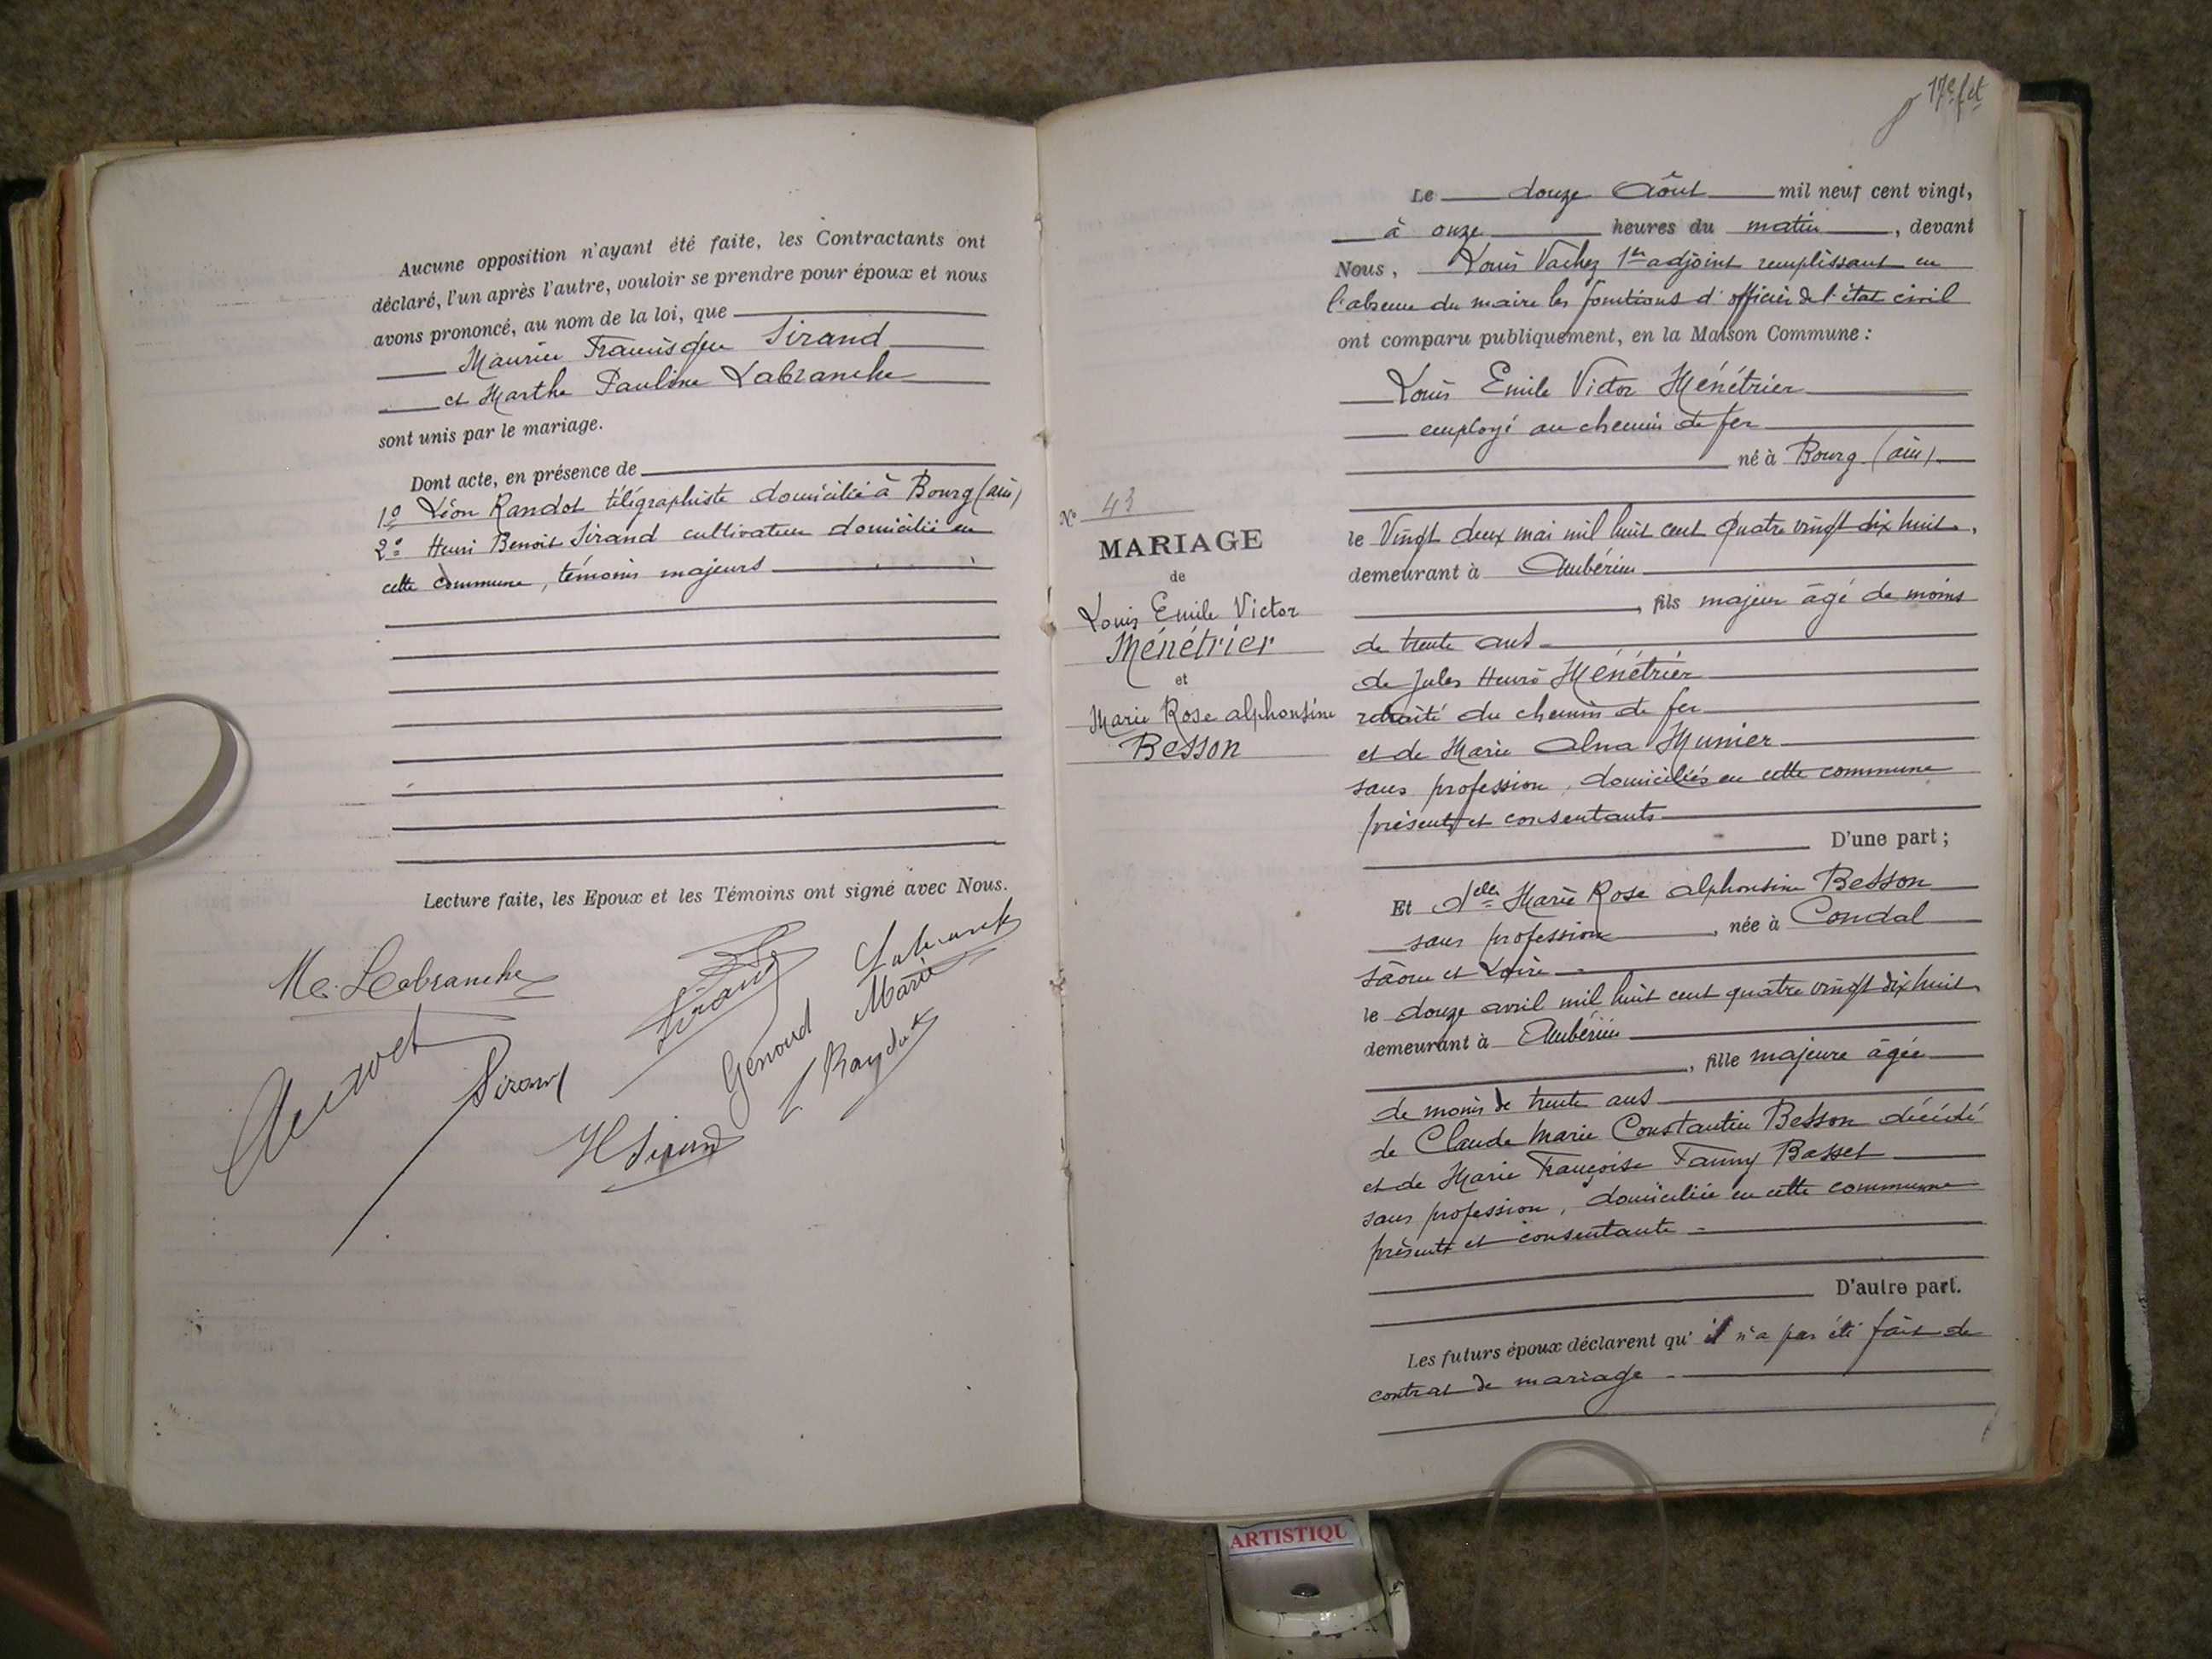 Aucune opposition n'ayant été faite, les Contractants ont
déclaré, l'un après l'autre, vouloir se prendre pour époux et nous
avons prononcé, au nom de la loi, que
Maurice Francisque Sirand
et Marthe Pauline Labranche
sont unis par le mariage.
Dont acte, en présence de
1º Léon Randot télégraphiste domicilié à Bourg (ain)
2º Henri Benoit Sirand cultivateur domicilié en
cette commune, témoins majeurs
Lecture faite, les Epoux et les Témoins ont signé avec Nous.
M. Labranche
Sirand
Genoud Marie
L Randot
Sirand
H Sirand
17e fet
Nº 43
MARIAGE
de
Louis Emile Victor
Ménétrier
et
Marie Rose alphonsine
Besson
Le douze Août mil neuf cent vingt,
à onze heures du matin, devant
Nous, Louis Vachez 1er adjoint remplissant en
l'absence du maire les fonctions d'officier de l'état civil
ont comparu publiquement, en la Maison Commune :
Louis Emile Victor Ménétrier
employé au chemin de fer
né à Bourg (ain)
le Vingt deux mai mil huit cent quatre vingt dix huit,
demeurant à Ambérieu
, fils majeur âgé de moins
de trente ans
de Jules Henri Ménétrier
retraité du chemin de fer
et de Marie Alna Munier
sans profession, domiciliés en cette commune
présents et consentants
D'une part ;
Et delle Marie Rose alphonsine Besson
sans profession, née à Condal
Sâone et Loire
le douze avril mil huit cent quatre vingt dix huit
demeurant à Ambérieu
, fille majeure âgée
de moins de trente ans
de Claude Marie Constantin Besson décédé
et de Marie Françoise Fanny Basset
sans profession, domiciliée en cette commune
présente et consentante
D'autre part.
Les futurs époux déclarent qu'il n'a pas été fait de
contrat de mariage
ARTISTIQU